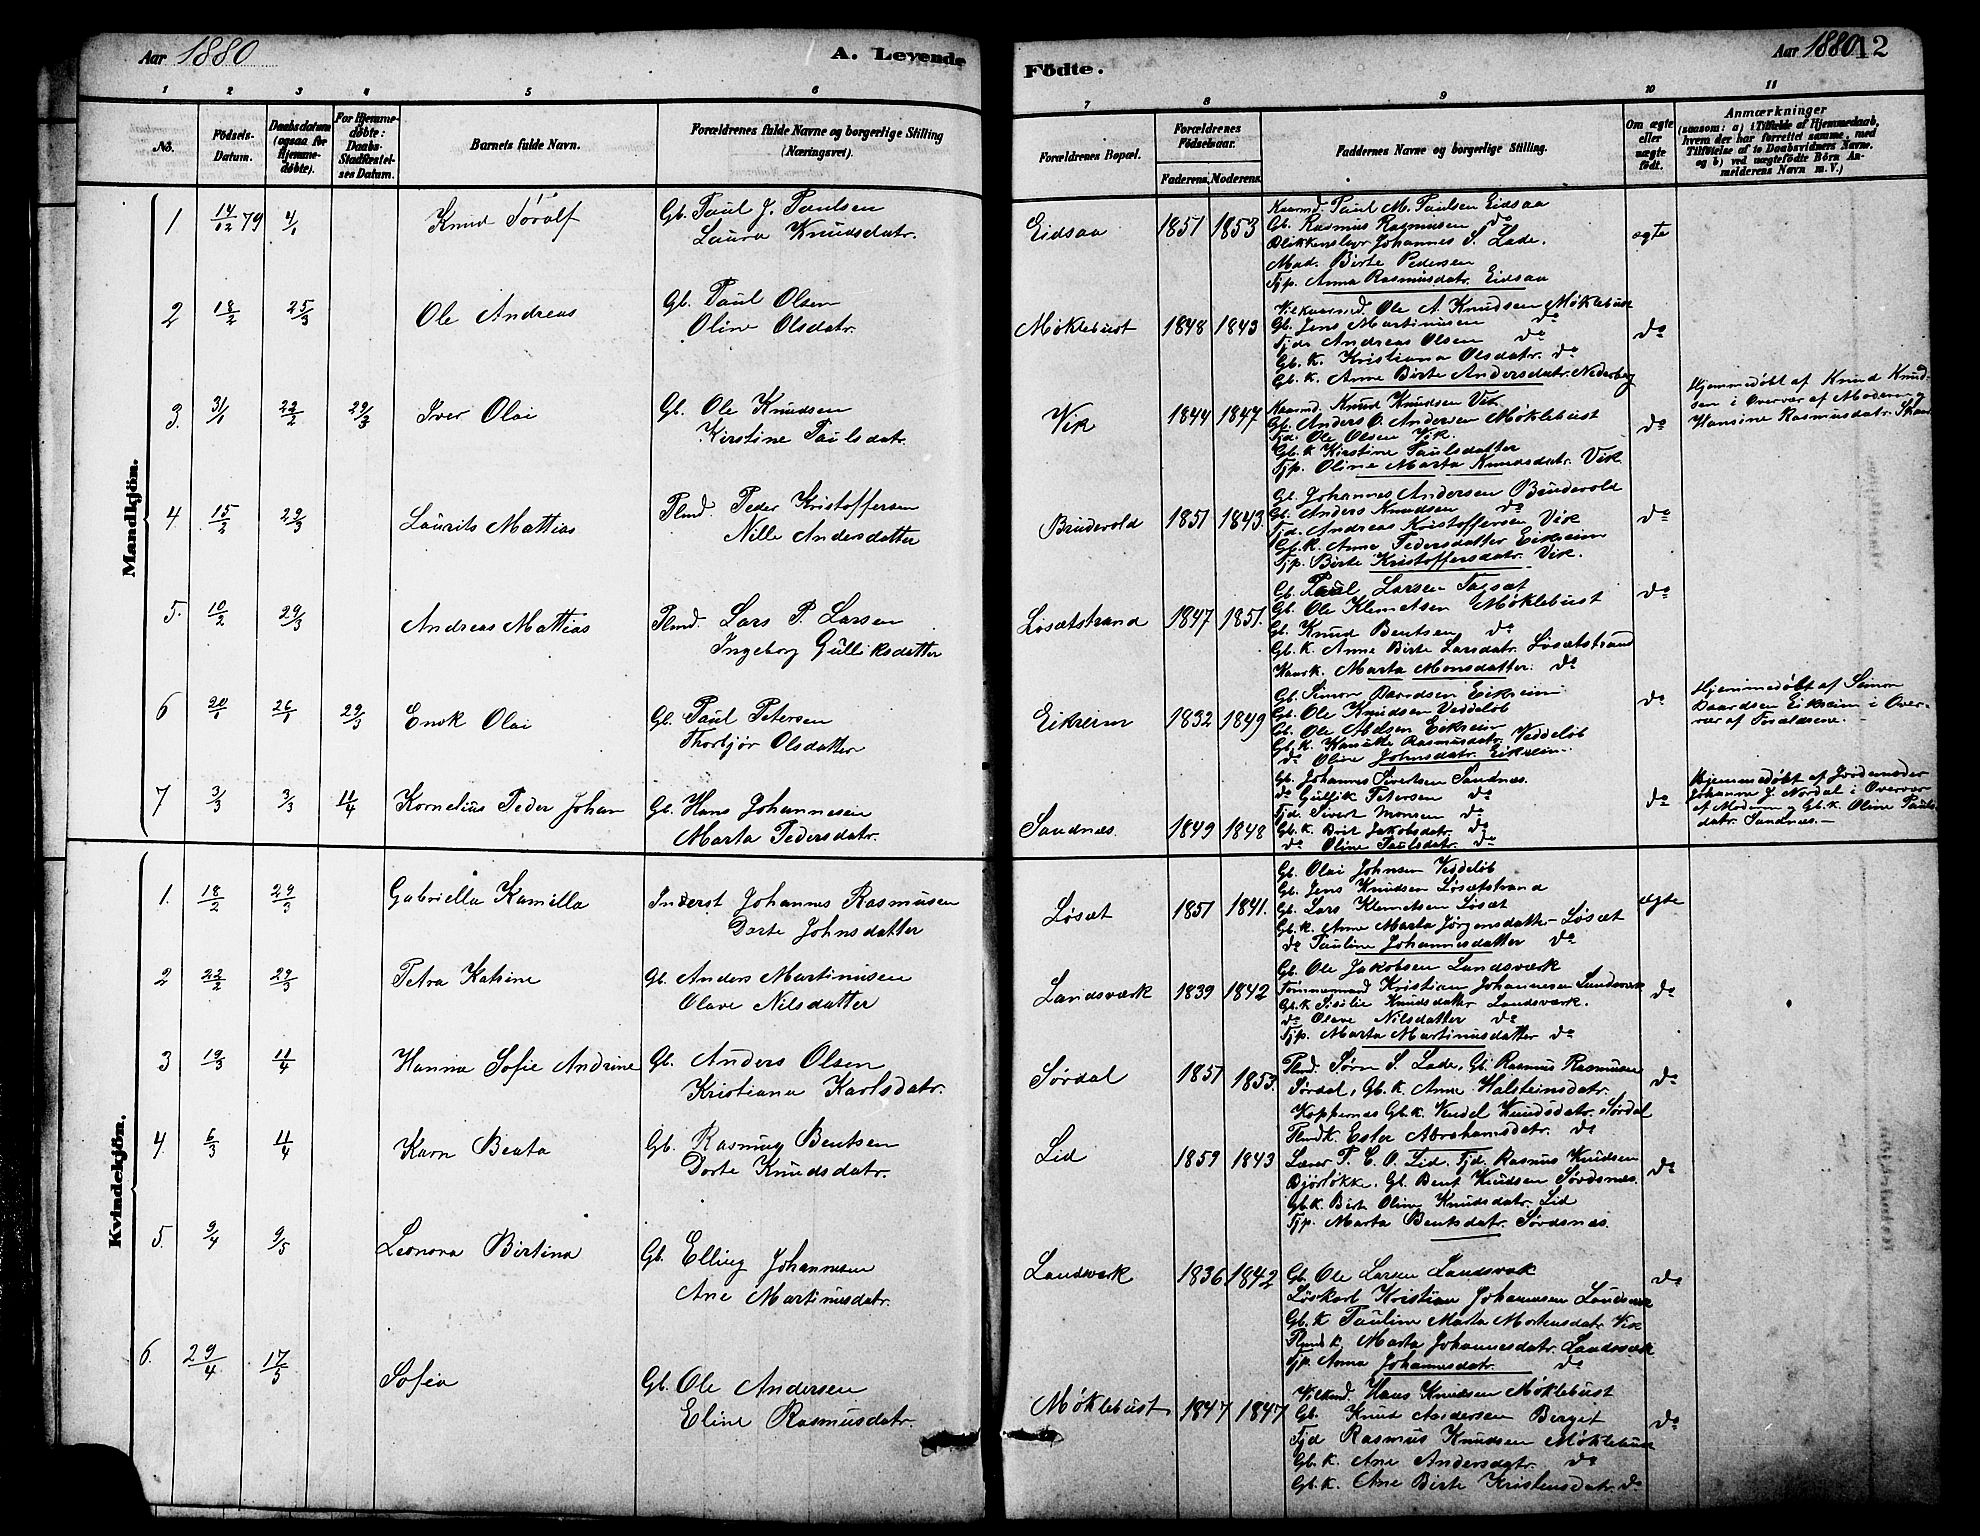 Aar 1880
A. Levende
Fødte.
Aar 1880
12
1 2 3 4 5 6
7 8 9 10 11
No.
Fødsels-
Datum.
Daabsdatum
(ogsaa for
Hjemme-
døbte).
For Hjemme-
døbte:
Daabs-
Stadfæstel-
ses Datum.
Barnets fulde Navn.
Forældrenes fulde Navne og borgerlige Stilling
(Næringsvei).
Forældrenes Bopæl.
Forældrenes
Fødselsaar.
Faderens. Moderens.
Faddernes Navne og borgerlige Stilling.
Om ægte
eller
uægte
født.
Anmærkninger
(saasom: a) i Tilfælde af Hjemmedaab,
hvem der har forrettet samme, med
Tilføielse af to Daabsvidners Navne,
og b) ved uægtefødte Børn An-
melderens Navn m. V.)
Mandkjön.
1 14/12 79 4/1 Knud Torolf Gb. Paul J. Paulsen
Laura Knudsdatr.
Eidsaa 1851 1853 ægte
Kaarmd Paul M. Paulsen Eidsaa
Gb. Rasmus Rasmussen do
Blikkenslagr Johannes S. Lade.
Mad. Birte Pedersen
Tjp. Anna Rasmusdatr. Eidsaa
2 18/2 25/3 Ole Andreas Gb. Paul Olsen
Oline Olsdatr.
Møklebust 1848 1843 do
Vilkaarsmd. Ole A. Knudsen Møklebust
Gb. Jens Martinusen do
Tjdr Andreas Olsen do
Gb. K. Kristiana Olsdatr. do
Gb. K. Anne Birte Andersdatr. Nederberg
3. 31/1 22/2 29/3 Iver Olai Gb. Ole Knudsen
Kirstine Paulsdatr.
Vik 1844 1847 do
Kaarmd. Knud Knudsen Vik
Gb. Anders O. Andersen Møklebust
Tjd. Ole Olsen Vik.
Gb. K Kirstine Paulsdatter
Tjp. Oline Marta Knudsdatr. Vik.
Hjemmedøbt af Knud Knud-
sen i Overvær af Moderen og
Hansine Rasmusdatr.
4 15/2 29/3 Laurits Mattias Plmd. Peder Kristoffersen
Nille Andersdatter
Brudevold 1851 1843. do
Gb. Johannes Andersen Brudevold
Gb. Anders Knudsen do
Tjd. Andreas Kristoffersen Vik
Gb. K. Anne Pedersdatter Eikreim
Tjp. Birte Kristoffersdatr. Vik.
5. 10/2 29/3 Andreas Mattias Plmd. Lars P. Larsen
Ingeborg Gulliksdatter
Løsætstrand 1847 1851. do
Gb. Paul Larsen Løsæt
Gb. Ole Klemetsen Møklebust
Gb. Knud Bentsen do
Gb. K. Anne Birte Larsdatr. Løsætstrand
Kaark. Marta Monsdatter. do
6 20/1 26/1 29/3 Enok Olai Gb. Paul Petersen
Thorbjør Olsdatter
Eikreim 1832 1849 do
Gb. Simon Baardsen Eikreim
Gb. Ole Knudsen Veddeløb
Gb. Ole Abelsen Eikreim
Gb. K. Kanutte Rasmusdatr. Veddeløb
do Oline Johnsdatr. Eikreim
Hjemmedøbt af Simon
Baardsen Eikreim i Over-
vær af Forældrene. –
7 3/3 3/3 11/4 Kornelius Peder Johan Gb. Hans Johannesen
Marta Pedersdatr.
Sandnæs. 1849 1848 do
Gb. Johannes Sivertsen Sandnæs.
do Gulljik Petersen do
Tjd. Sivert Monsen do
Gb. K. Brit Jakobsdatr. do
do Oline Paulsdatr. do
Hjemmedøbt af Jordemoder
Johanne J. Nordal i Overvær
af Moderen og Gb. K. Oline Pauls-
datr. Sandnæs. –
Kvindekjön.
1. 18/2 29/3 Gabriella Kamilla Inderst Johannes Rasmusen
Dorte Johnsdatter
Løsæt 1851 1841. ægte
Gb. Olai Johnsen Veddeløb
Gb. Jens Knudsen Løsætstrand
Gb. Lars Klemetsen Løsæt
Gb. K. Anne Marta Jørgensdatter Løsæt
do Pauline Johannesdatter do
2 22/2 29/3 Petra Katrine Gb. Anders Martinusen
Olave Nilsdatter
Landsværk 1839 1842 do
Gb. Ole Jakobsen Landsværk
Tømmermand Kristian Johannesen Landsværk
Gb. K Sisilie Knudsdatter Landsværk.
do Olave Nilsdatter do
Tjp. Marta Martinusdatter do
3 19/3 11/4 Hanna Sofie Andrine Gb. Anders Olsen
Kristiana Karlsdatr.
Sørdal 1851 1853. do
Plmd Sørn S. Lade, Gb. Rasmus Rasmusen
Sørdal, Gb. K. Anne Halsteinsdatr.
Koppernæs Gb. K. Vendel Knudsdatr. Sørdal
Plmdk. Ester Abrahamsdatr. do
4. 6/3 11/4 Karn Beata Gb. Rasmus Bentsen
Dorte Knudsdatr.
Lid 1859 1843 do
Lærer P. C. O. Lid. Tjd. Rasmus Knudsen
Bjørløkke, Gb. Bent Knudsen Sørdsnæs.
Gb. K. Birte Oline Knudsdatr. Lid
Tjp. Marta Bentsdatr. Sørdsnæs.
5. 9/4 9/5 Leonora Birtina Gb. Elling Johannesen
Ane Martinusdatr.
Landsværk 1836 1842 do
Gb. Ole Larsen Landsværk
Løskarl Kristian Johannesen Landsværk
Gb. K Pauline Marta Mortensdatr. Vik
Plmdk. Marta Johannesdatr. Landsværk
Tjp. Anna Johannesdatr. do
6. 29/4 17/5 Sofia Gb. Ole Andersen
Eline Rasmusdatr.
Møklebust 1847 1847 do
Vilkmd. Hans Knudsen Møklebust
Gb. Knud Andersen Berget
Tjd Rasmus Knudsen Møklebust
Gb. K. Ane Andersdatr. do
Gb. K. Ane Birte Kristensdatr. do